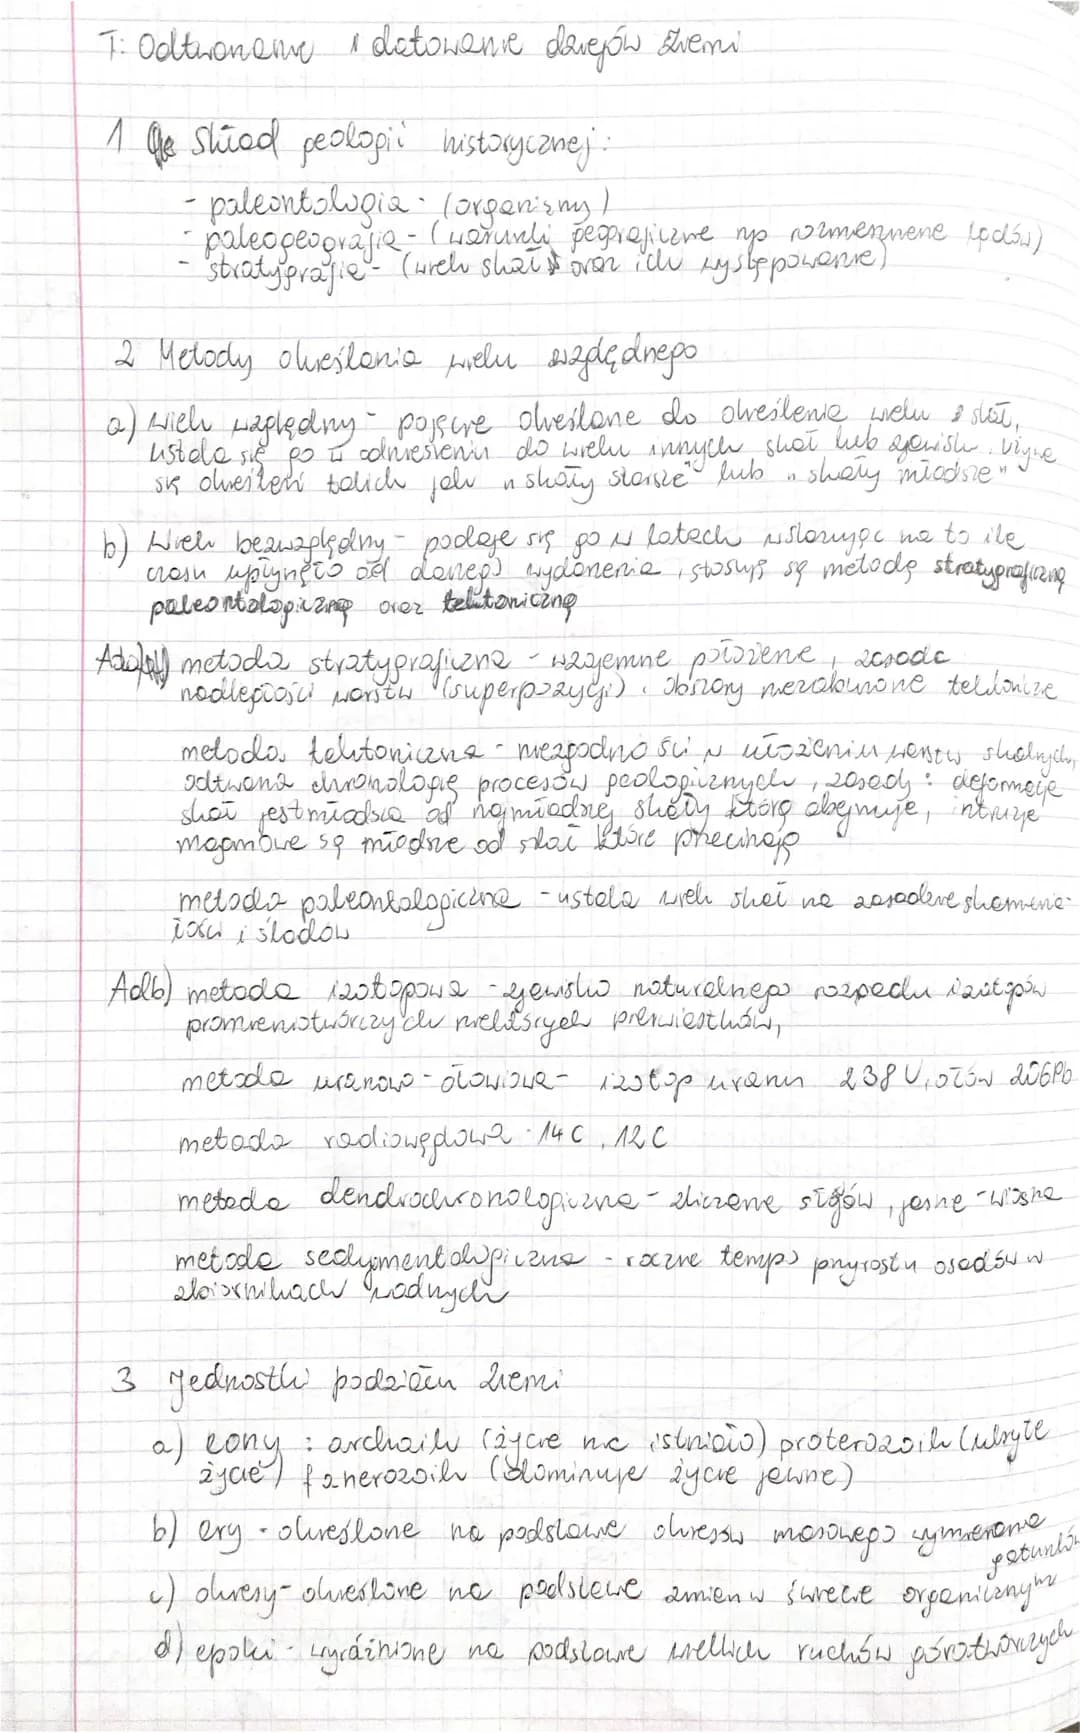 T: Odtwarzanie i datowanie dziejów Ziemi
1 Skład geologii historycznej:
- paleontologia - (organizmy)
- paleogeografia - (warunki geograficzne np rozmieszczenie lądów)
- stratygrafia - (wiek skał oraz ich występowanie)
2 Metody określania wieku względnego
a) wiek względny - pojęcie określane do określenia wieku skał,
ustala się go w odniesieniu do wieku innych skał lub zjawisk. Używa
się określeń takich jak "skały starsze" lub "skały młodsze"
b) Wiek bezwzględny - podaje się go w latach wskazując na to ile
czasu upłynęło od danego wydarzenia, stosuje się metodę stratygraficzną
paleontologiczną oraz tektoniczną
Ada) metoda stratygraficzna - wzajemne położenie, zasada
nadległości warstw (superpozycji). Obszary niezaburzone tektonicznie
metoda tektoniczna - niezgodności w ułożeniu warstw skalnych,
odtwarza chronologię procesów geologicznych, zasady: deformacja
skał jest młodsza od najmłodszej skały którą obejmuje, intruzje
magmowe są młodsze od skał które przecinają
metoda paleontologiczna - ustala wiek skał na zasadzie skamienia-
łości i śladów
Adb) metoda izotopowa - zjawisko naturalnego rozpadu izotopów
promieniotwórczych niektórych pierwiastków,
metoda uranowo-ołowiowa - izotop uranu 238U, ołów 206Pb
metoda radiowęglowa - 14C, 12C
metoda dendrochronologiczna - zliczanie słojów, jasne - wiosna
metoda sedymentologiczna - roczne tempo przyrostu osadów w
zbiornikach wodnych
3 Jednostki podziału Ziemi
a) eony: archaik (życie nie istniało) proterozoik (ukryte
życie) fanerozoik (dominuje życie jawne)
b) ery - określone na podstawie okresów masowego wymierania
gatunków
c) okresy - określone na podstawie zmian w świecie organicznym
d) epoki - wyróżnione na podstawie wielkich ruchów górotwórczych